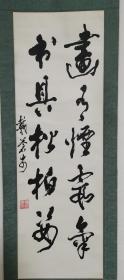 畫了煙霞氣
書具松柏姿
戴